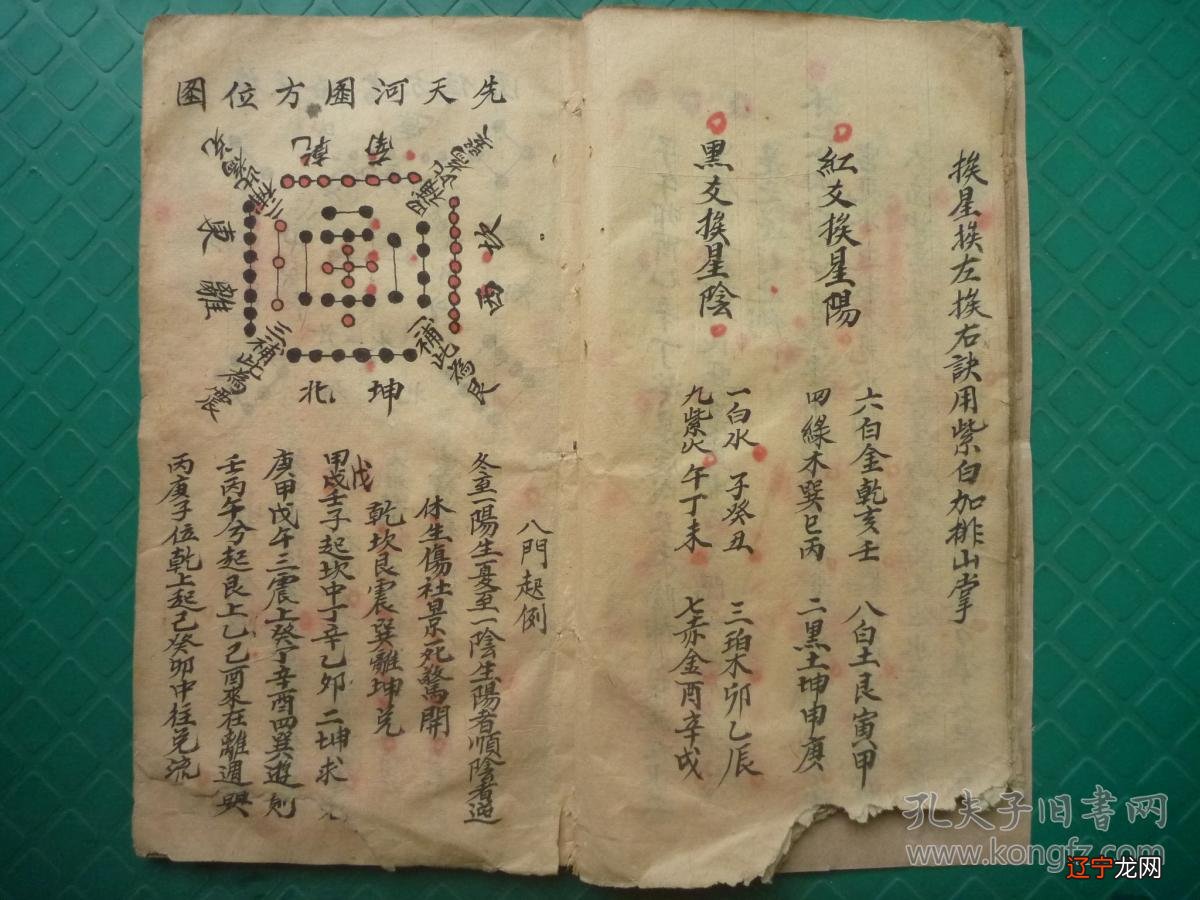 挨星挨左挨右訣用紫白加排山掌
紅爻挨星陽
六白金乾亥壬 八白土艮寅甲
四綠木巽巳丙 二黑土坤申庚
黑爻挨星陰
一白水子癸丑 三珀木卯乙辰
九紫火午丁未 七赤金酉辛戌
先天河圖方位圖
南乾
坎西
坤北
東離
二補此為兌
一補此為艮
三補此為震
八門起例
冬至一陽生夏至一陰生陽者順陰者逆
休生傷社景死驚開
乾坎艮震巽離坤兌
甲戊壬子起坎中丁辛乙卯二坤求
戊
庚甲戊午三震上癸丁辛酉四巽遊
壬丙午兮起艮上乙己酉來在離週
丙庚子位乾上起己癸卯中往兌流
孔夫子旧书网
www.kongfz.com
辽宁龙网